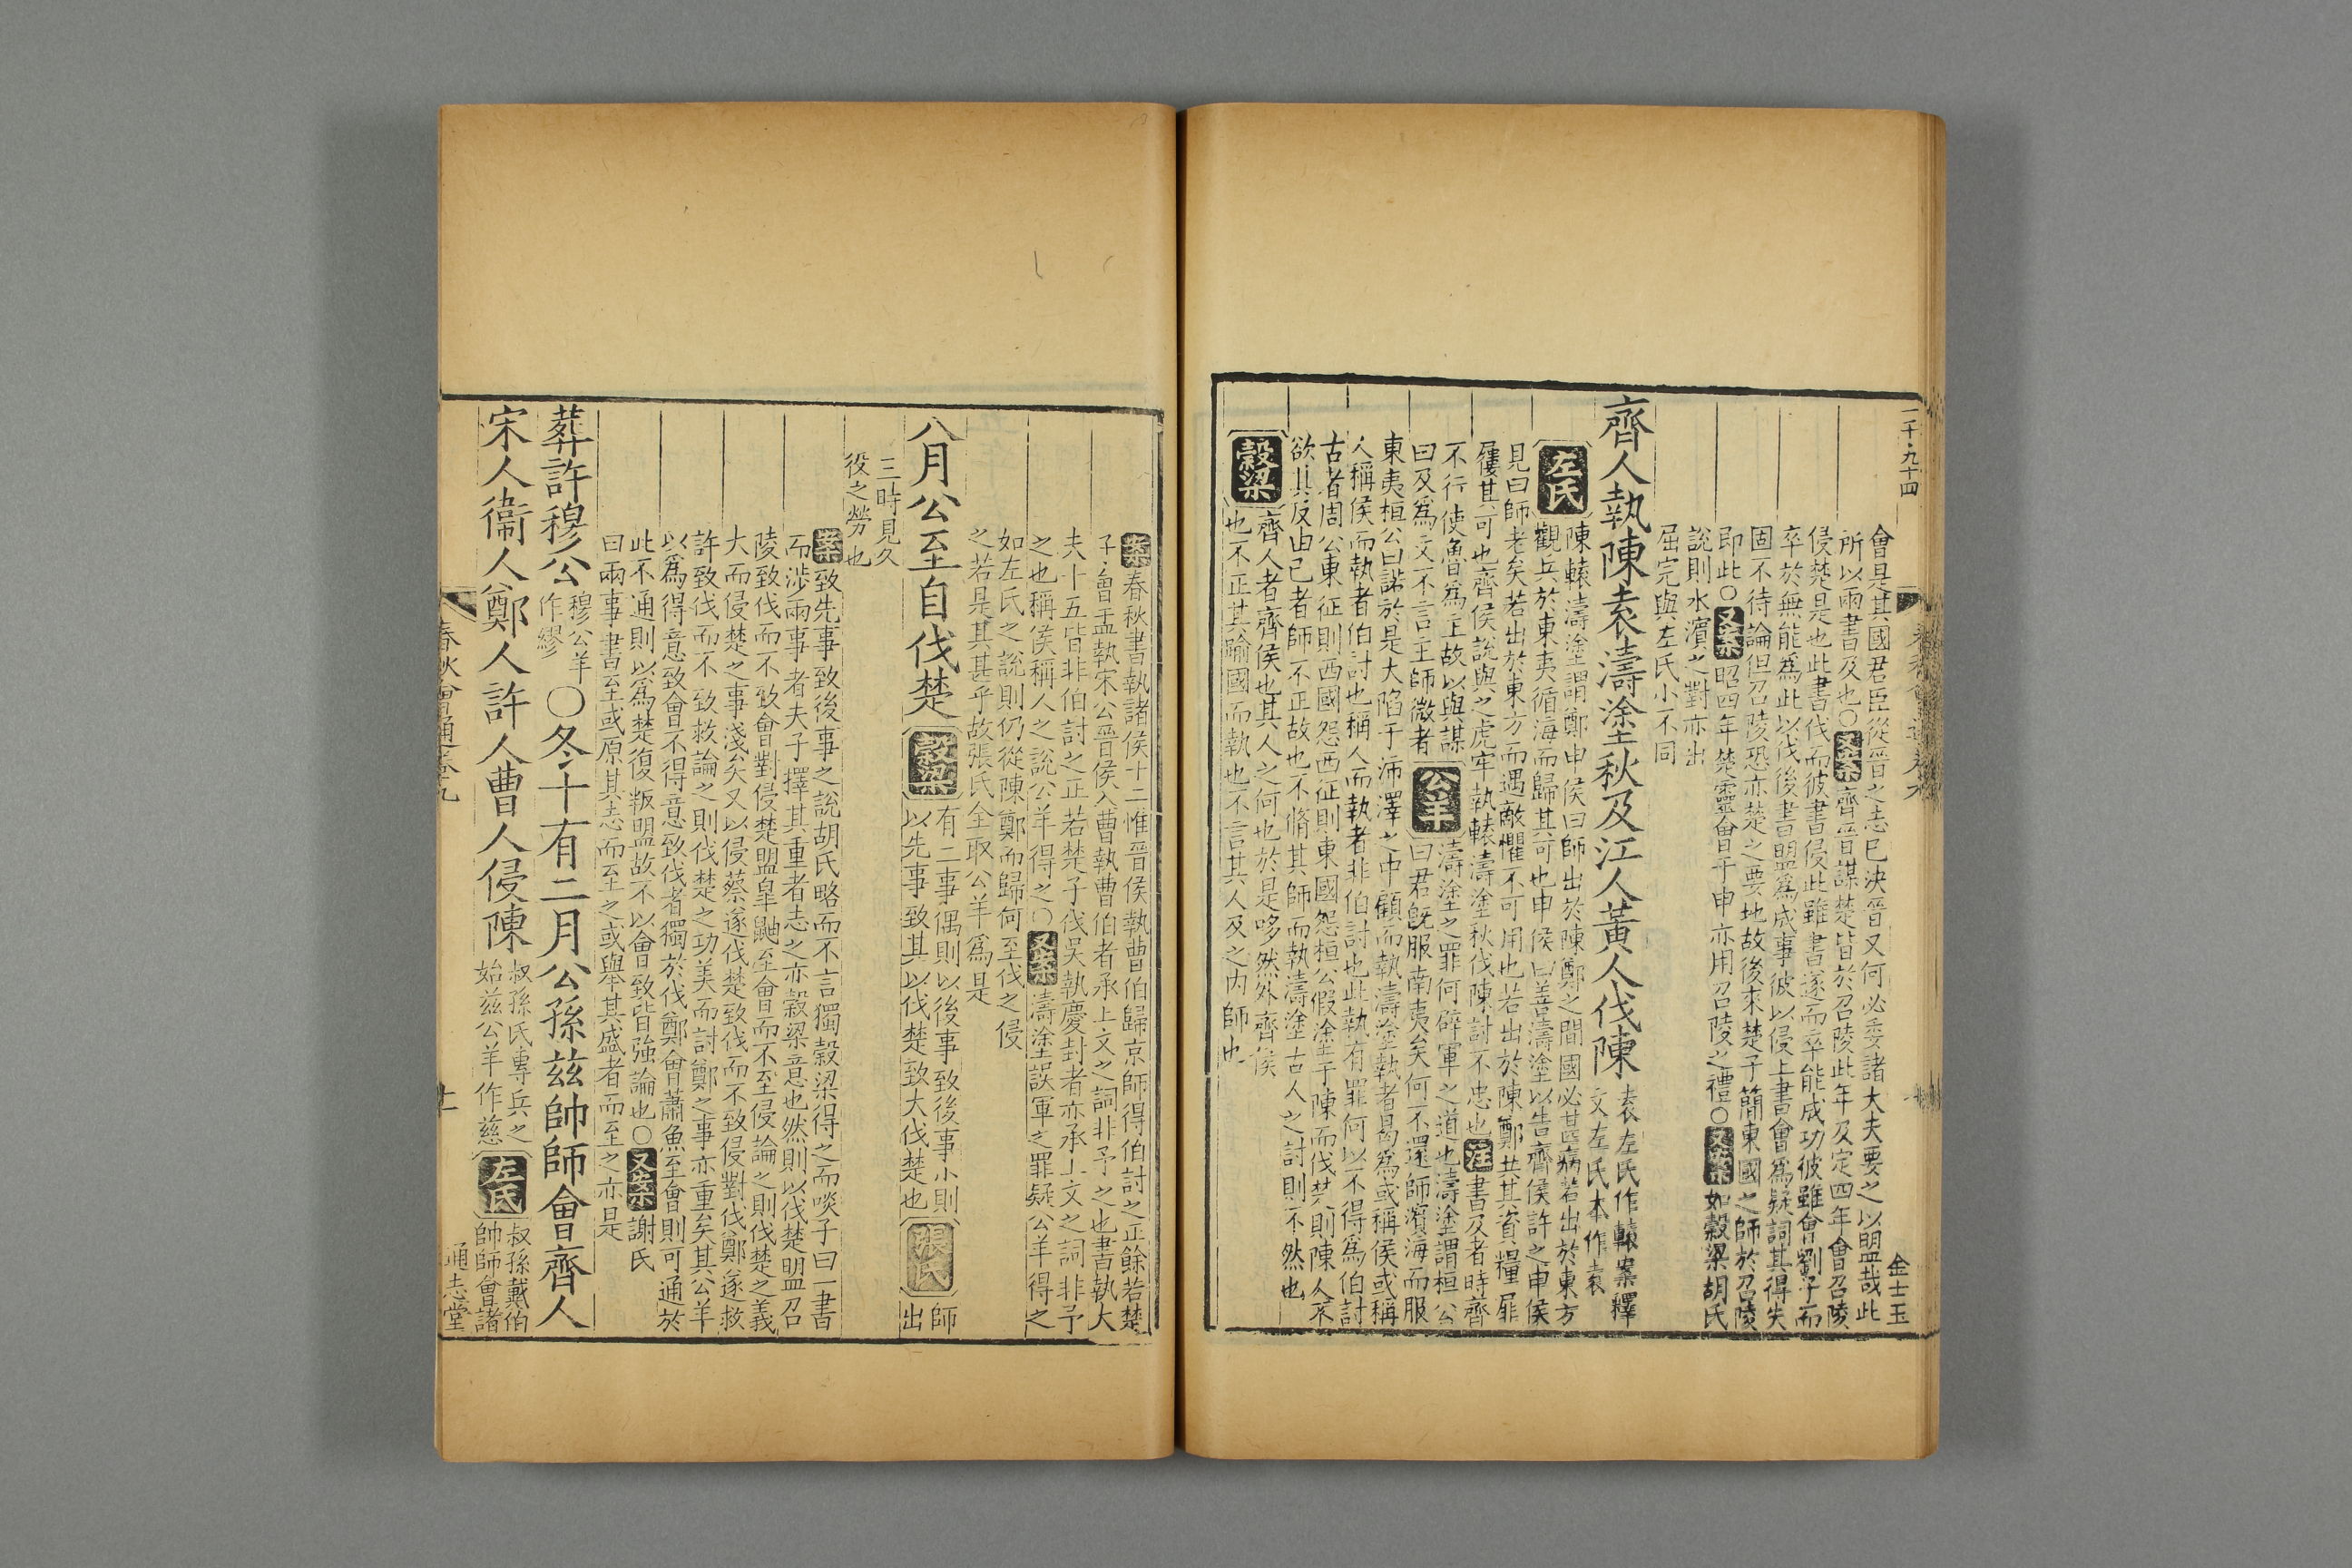 二千九十四
會是其國君臣從晉之志已決晉又何必委諸大夫要之以明盟哉此
所以兩書及也○又案齊晉謀楚皆於召陵此年及定四年會召陵
侵楚是也此書伐而彼書侵此雖書遂而卒能成功彼雖會劉子而
卒於無能為此以伐後書盟為成事彼以侵上書會為疑詞其得失
固不待論但召陵恐亦楚之要地故後來楚子簡東國之師於召陵
即此○又案昭四年楚靈會于申亦用召陵之禮○又案如穀梁胡氏
說則水濱之對亦出
屈完與左氏小不同
齊人執陳袁濤塗秋及江人黃人伐陳袁左氏作轅案釋
文左氏本作袁
左氏陳轅濤塗謂鄭申侯曰師出於陳鄭之間國必甚病若出於東方
觀兵於東夷循海而歸其可也申侯曰善濤塗以告齊侯許之申侯
見曰師老矣若出於東方而遇敵懼不可用也若出於陳鄭共其資糧屝
屨其可也齊侯說與之虎牢執轅濤塗秋伐陳討不忠也注書及者時齊
不行使魯為主故以與謀
曰及為文不言主師微者公羊濤塗之罪何辟軍之道也濤塗謂桓公
曰君旣服南夷矣何不還師濱海而服
東夷桓公曰諾於是大陷于沛澤之中顧而執濤塗執者曷為或稱侯或稱
人稱侯而執者伯討也稱人而執者非伯討也此執有罪何以不得為伯討
古者周公東征則西國怨西征則東國怨桓公假塗于陳而伐楚則陳人不
欲其反由己者師不正故也不脩其師而執濤塗古人之討則不然也
穀梁齊人者齊侯也其人之何也於是哆然外齊侯
也不正其踰國而執也不言其人及之內師也
金士玉
案春秋書執諸侯十二惟晉侯執曹伯歸京師得伯討之正餘若楚
子會盂執宋公晉侯入曹執曹伯者承上文之詞非予之也書執大
夫十五皆非伯討之正若楚子伐吳執慶封者亦承上文之詞非予
之也稱侯稱人之說公羊得之○又案濤塗誤軍之罪疑公羊得之
如左氏之說則仍從陳鄭而歸何至伐之侵
之若是其甚乎故張氏全取公羊為是
八月公至自伐楚穀梁有二事偶則以後事致後事小則
以先事致其以伐楚致大伐楚也張氏師出
三時見久
役之勞也
案致先事致後事之說胡氏略而不言獨穀梁得之而啖子曰一書
而渉兩事者夫子擇其重者志之亦穀梁意也然則以伐楚盟召
陵致伐而不致會對侵楚盟皐鼬至會而不至侵論之則伐楚之義
大而侵楚之事淺矣又以侵蔡遂伐楚致伐而不致侵對伐鄭遂救
許致伐而不致救論之則伐楚之功美而討鄭之事亦重矣其公羊
以為得意致會不得意致伐者獨於伐鄭會蕭魚至會則可通於
此不通則以為楚復叛盟故不以會致皆強論也○又案謝氏
曰兩事書至或原其志而至之或舉其盛者而至之亦是
葬許穆公穆公羊
作繆○冬十有二月公孫兹帥師會齊人
宋人衞人鄭人許人曹人侵陳叔孫氏專兵之
始兹公羊作慈左氏叔孫戴伯
帥師會諸
春秋會通卷九
十一
通志堂